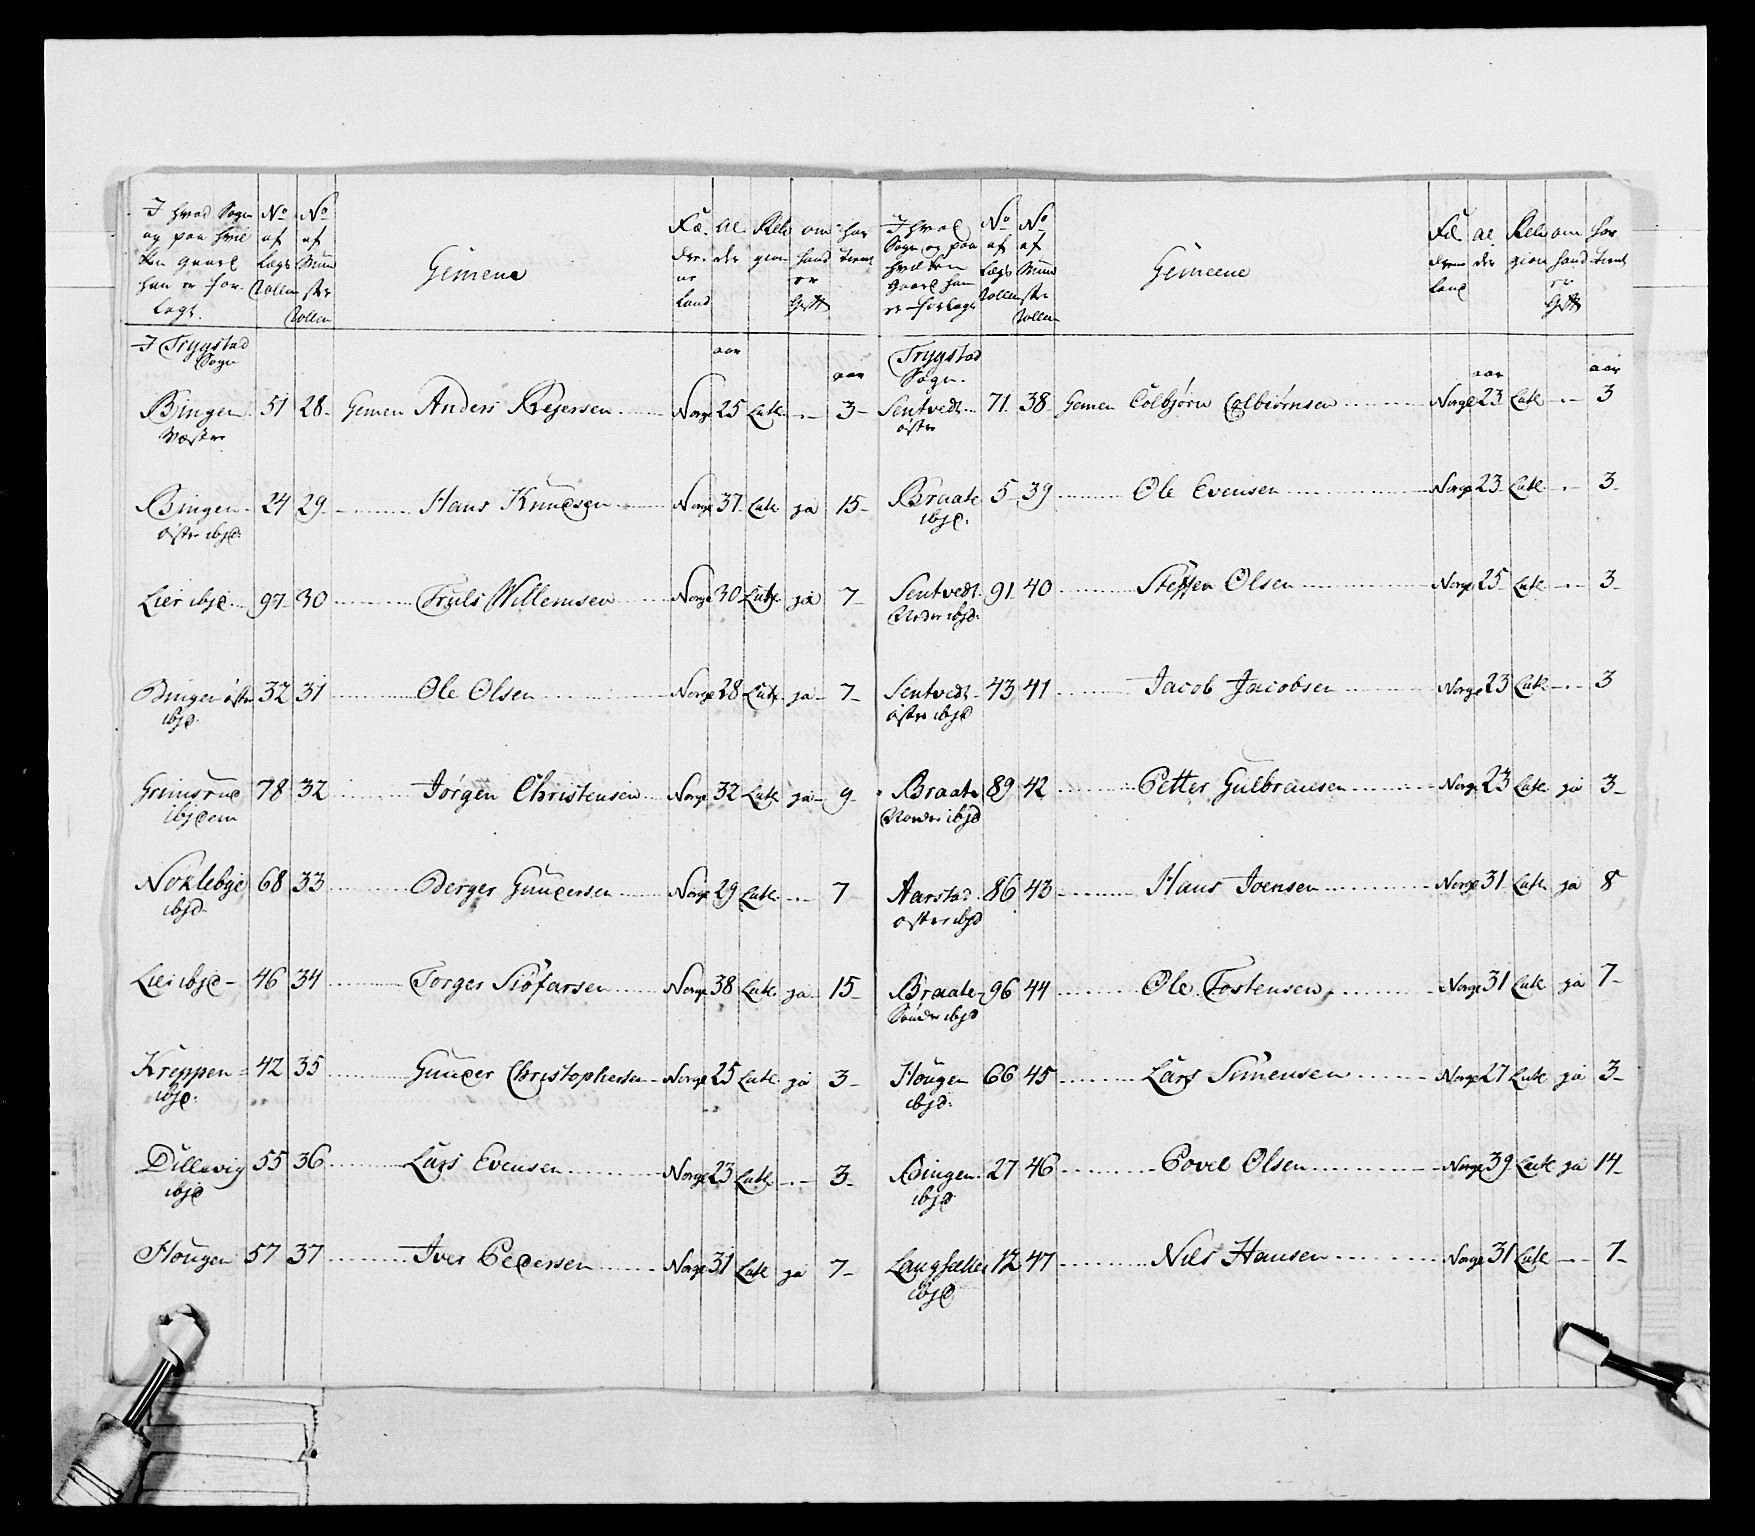 I hvad Sogn
og paa hvil
ken gaard
han er for
lagt.
No
af
Lægs
Rollen
No
af
Mün
ster
Rollen
Gemene
Fæ.
dre.
ne
Land
al
der
Reli
gion
om
hand
er
Gift
har
tient
I Trygstad
Sogn
aar
aar
Bingen 51 28 Gemen Anders Rejersen Norge 25 Luth - 3
Væstre
Bingen 24 29 Hans Knudsen Norge 37 Luth ja 15
østre ibjd
Lier ibjd 97 30 Truls Willemsen Norge 30 Luth ja 7
Bingen østre 32 31 Ole Olsen Norge 28 Luth ja 7
ibjd
Grimsrud 78 32 Jørgen Christensen Norge 32 Luth ja 9
ibjdem
Noklebye 68 33 Berger Gundersen Norge 29 Luth - 7
ibjd
Lier ibjd 46 34 Torger Siøfarsen Norge 38 Luth ja 15
Kreppen 42 35 Gunder Christophersen Norge 25 Luth ja 3
ibjd
Dillevig 55 36 Lars Evensen Norge 23 Luth - 3
ibjd
Hougen 57 37 Iver Pedersen Norge 31 Luth ja 7
I hvad
Sogn og paa
hvilken
Gaard han
er forlagt
No
af
Lægs
Rollen
No
af
Mün
ster
Rollen
Gemeene
Fæ
drene
Land
al
der
Reli
gion
om
hand
er
Gift
har
tient
Trygstad
Sogn.
aar
aar
Sentvedt 71 38 Gemen Colbjørn Colbiørnsen Norge 23 Luth - 3
østre
Braate 5 39 Ole Evensen Norge 23 Luth - 3
ibjd.
Sentvedt 91 40 Steffen Olsen Norge 25 Luth - 3
Nedre ibjd.
Sentvedt 43 41 Jacob Jacobsen Norge 23 Luth - 3
østre ibjd
Braate 89 42 Petter Gulbransen Norge 23 Luth ja 3
Nordre ibjd
Aarstad 86 43 Hans Joensen Norge 31 Luth ja 8
østre ibjd
Braate 96 44 Ole Tostensen Norge 31 Luth ja 7
Søndre ibjd
Hougen 66 45 Lars Simensen Norge 27 Luth ja 3
ibjd.
Bingen 27 46 Povel Olsen Norge 39 Luth ja 14
ibjd
Langsæther 12 47 Nils Hansen Norge 31 Luth - 7
ibjd